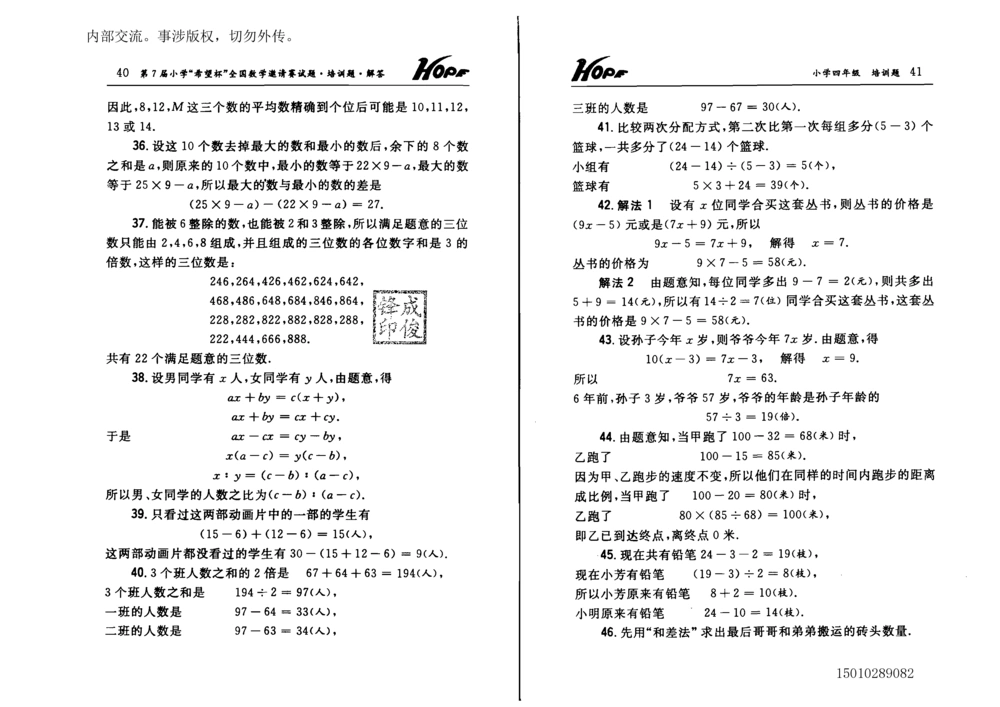 内部交流。事涉版权，切勿外传。
40 第7届小学“希望杯”全国数学邀请赛试题·培训题·解答 HOPE
因此,8,12,M 这三个数的平均数精确到个位后可能是 10,11,12,
13 或 14.
36. 设这 10 个数去掉最大的数和最小的数后,余下的 8 个数
之和是 a,则原来的 10 个数中,最小的数等于 22×9－a,最大的数
等于 25×9－a,所以最大的数与最小的数的差是
(25×9－a)－(22×9－a) = 27.
37. 能被 6 整除的数,也能被 2 和 3 整除,所以满足题意的三位
数只能由 2,4,6,8 组成,并且组成的三位数的各位数字和是 3 的
倍数,这样的三位数是:
246,264,426,462,624,642,
468,486,648,684,846,864,
228,282,822,882,828,288,
222,444,666,888.
锋成
印俊
共有 22 个满足题意的三位数.
38. 设男同学有 x 人,女同学有 y 人,由题意,得
ax + by = c(x + y),
ax + by = cx + cy.
于是 ax － cx = cy － by,
x(a－c) = y(c－b),
x : y = (c－b) : (a－c),
所以男、女同学的人数之比为(c－b) : (a－c).
39. 只看过这两部动画片中的一部的学生有
(15－6)+(12－6) = 15(人),
这两部动画片都没看过的学生有 30－(15+12－6) = 9(人).
40. 3 个班人数之和的 2 倍是 67+64+63 = 194(人),
3 个班人数之和是 194÷2 = 97(人),
一班的人数是 97－64 = 33(人),
二班的人数是 97－63 = 34(人),
HOPE 小学四年级 培训题 41
三班的人数是 97－67 = 30(人).
41. 比较两次分配方式,第二次比第一次每组多分(5－3) 个
篮球,一共多分了(24－14) 个篮球.
小组有 (24－14)÷(5－3) = 5(个),
篮球有 5×3+24 = 39(个).
42. 解法 1 设有 x 位同学合买这套丛书,则丛书的价格是
(9x－5) 元或是(7x+9) 元,所以
9x－5 = 7x+9, 解得 x = 7.
丛书的价格为 9×7－5 = 58(元).
解法 2 由题意知,每位同学多出 9－7 = 2(元),则共多出
5+9 = 14(元),所以有 14÷2 = 7(位) 同学合买这套丛书,这套丛
书的价格是 9×7－5 = 58(元).
43. 设孙子今年 x 岁,则爷爷今年 7x 岁. 由题意,得
10(x－3) = 7x－3, 解得 x = 9.
所以 7x = 63.
6 年前,孙子 3 岁,爷爷 57 岁,爷爷的年龄是孙子年龄的
57÷3 = 19(倍).
44. 由题意知,当甲跑了 100－32 = 68(米) 时,
乙跑了 100－15 = 85(米).
因为甲、乙跑步的速度不变,所以他们在同样的时间内跑步的距离
成比例,当甲跑了 100－20 = 80(米) 时,
乙跑了 80×(85÷68) = 100(米),
即乙已到达终点,离终点 0 米.
45. 现在共有铅笔 24－3－2 = 19(枝),
现在小芳有铅笔 (19－3)÷2 = 8(枝),
所以小芳原来有铅笔 8+2 = 10(枝).
小明原来有铅笔 24－10 = 14(枝).
46. 先用“和差法”求出最后哥哥和弟弟搬运的砖头数量.
15010289082